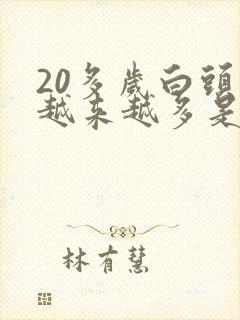 20多歲白頭
越來越多是
林有慧